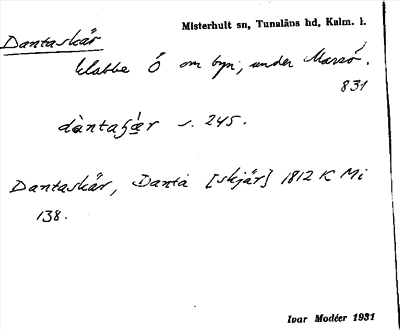 Dantaskär
Misterhult sn, Tunaläns hd, Kalm. l.
klabbe Ö om byn; under Marsö.
831
s. 245.
Dantaskär, Danta [skjär] 1812 K Mi
138.
Ivar Modéer 1931